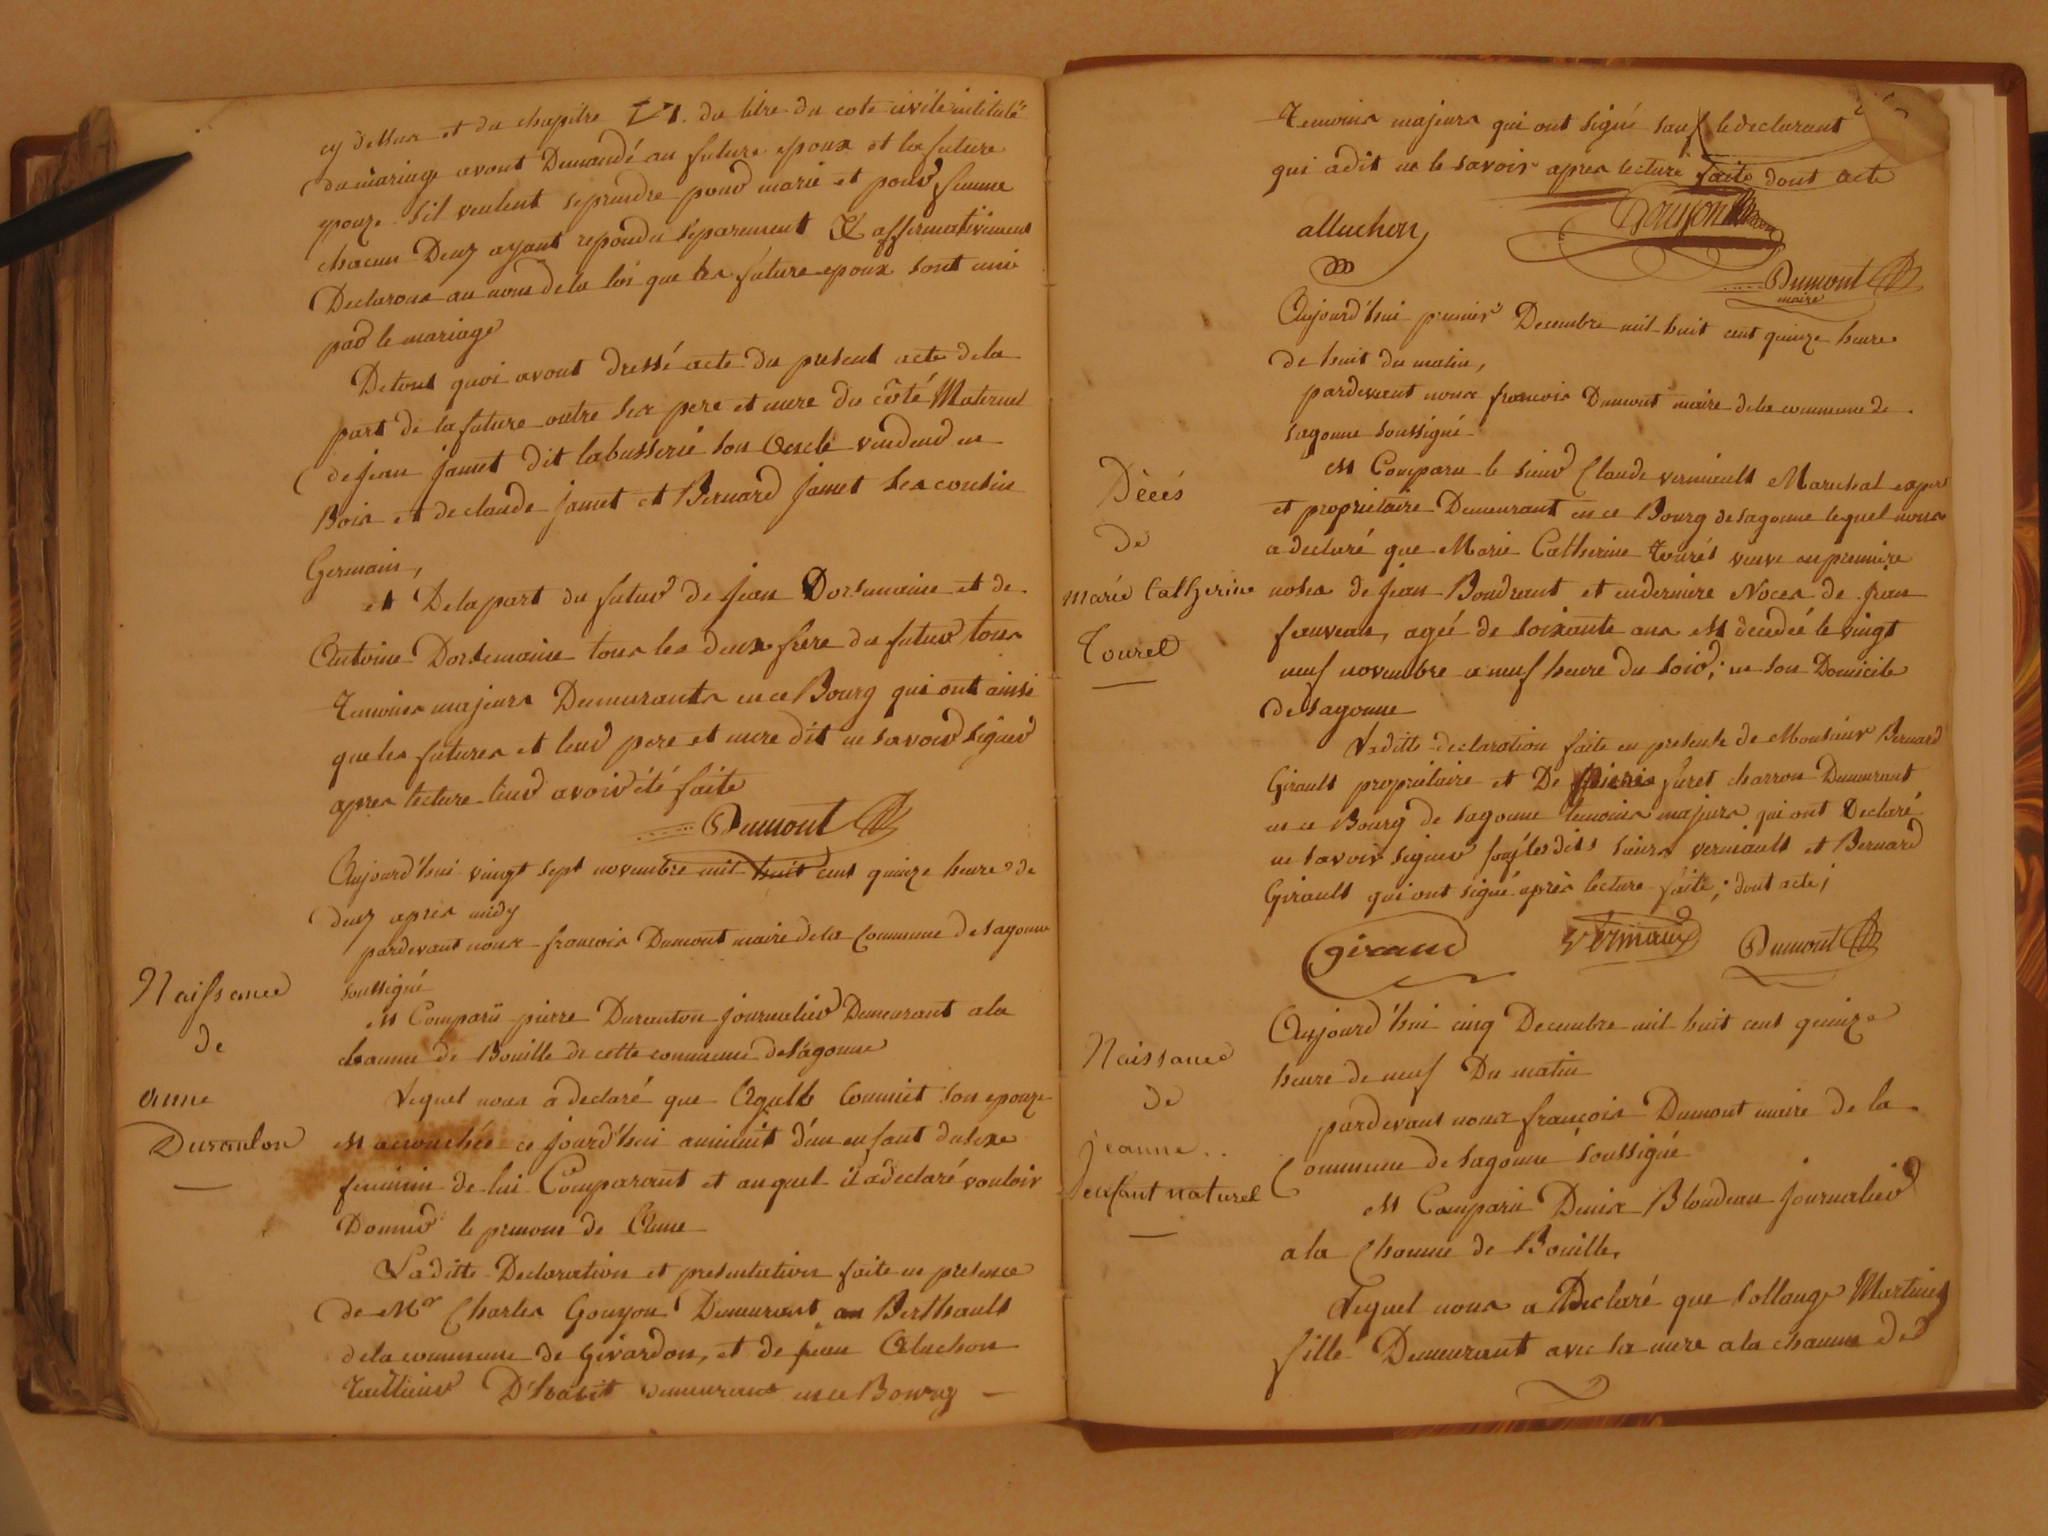 cy dessus et du chapitre VI. du titre du cote civile intitulé
du mariage avont Demandé au future epoux et la future
epouze sil veulent seprendre pour marie et pour femme
chacun Deux ayant repondu separement & affirmativement
Declarons au nom de la loi que les future epoux sont uni
par le mariage
De tout quoi avont dressé acte du present acte de la
part de la future outre ses pere et mere du côté Maternel
de jean jamet dit labusserie son Oncle vendeur en
Bois et de claude jamet et Bernard jamet ses cousin
Germain,
et De la part du futur de jean Dorsemaine et de
Antoine Dorsemaine tous les deux frere du futur tous
Temoins majeurs Demeurants en ce Bourg qui ont ainsi
que les futures et leur pere et mere dit ne savoir signer
apres lecture leur avoir été faite
Dumont
Aujourd'hui vingt sept novembre mil huit cent quinze heure de
deux apres midy
pardevant nous francois Dumont maire de la Commune de Sagonne
soussigné
Naissance
de
anne
Duranton
est Comparu pierre Duranton journalier Demeurant a la
chaume de Bouille de cette commune de Sagonne
Lequel nous a declaré que Agathe Commiet son epouze
est accouchée ce jourd'hui a minuit d'un enfant du sexe
feminin de lui Comparant et auquel il a declaré vouloir
Donner le prenom de Anne
Laditte Declaration et presentation faite en presence
de Mr Charles Gouyon Demeurant au Berthault
de la commune de Givardon, et de jean Aluchon
Taillieur D'habit demeurant en ce Bourg
Temoins majeurs qui ont signé sauf le declarant
qui a dit ne le savoir apres lecture faite dont acte
alluchon
Dumont
maire
Aujourd'hui premier Decembre mil huit cent quinze heure
de huit du matin,
pardevant nous francois Dumont maire de la commune de
sagonne soussigné
Décés
de
marie Catherine
Touret
est Comparu le sieur Claude vermiault Marechal expert
et proprietaire Demeurant en ce Bourg de sagonne lequel nous
a declaré que Marie Catherine Tourés veuve en premiere
noses de jean Boudrant et en derniere Noces de jean
fauveau, ageé de soixante ans est decedeé le vingt
neuf novembre a neuf heure du soir; en son Domicile
de sagonne
Laditte declaration faite en presente de Monsieur Bernard
Girault proprietaire et De furet charron Demeurant
en ce Bourg de sagonne temoins majeurs qui ont Declaré
ne savoir signer sauf lesdits sieurs vermiault et Bernard
Girault qui ont signé après lecture faite; dont acte;
giraud vermiaux Dumont
Aujourd'hui cinq Decembre mil huit cent quinze
heure de neuf Du matin
Naissance
de
jeanne..
enfant naturel
pardevant nous françois Dumont maire de la
Commune de sagonne soussigné
est Comparu Denis Blondeau journalier
a la Chaume de Bouille,
Lequel nous a Declaré que Sollange Martinet
fille Demeurant avec sa mere a la chaume de